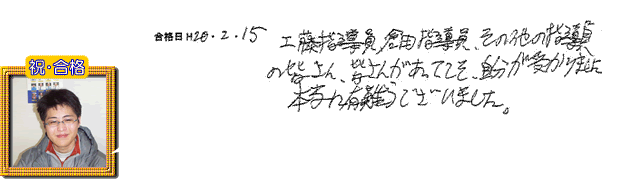 合格日 H20・2・15
工藤指導員、倉田指導員、その他の指導員
の皆さん、皆さんがあってこそ、自分が受かりました
本当に有難うございました。
祝・合格